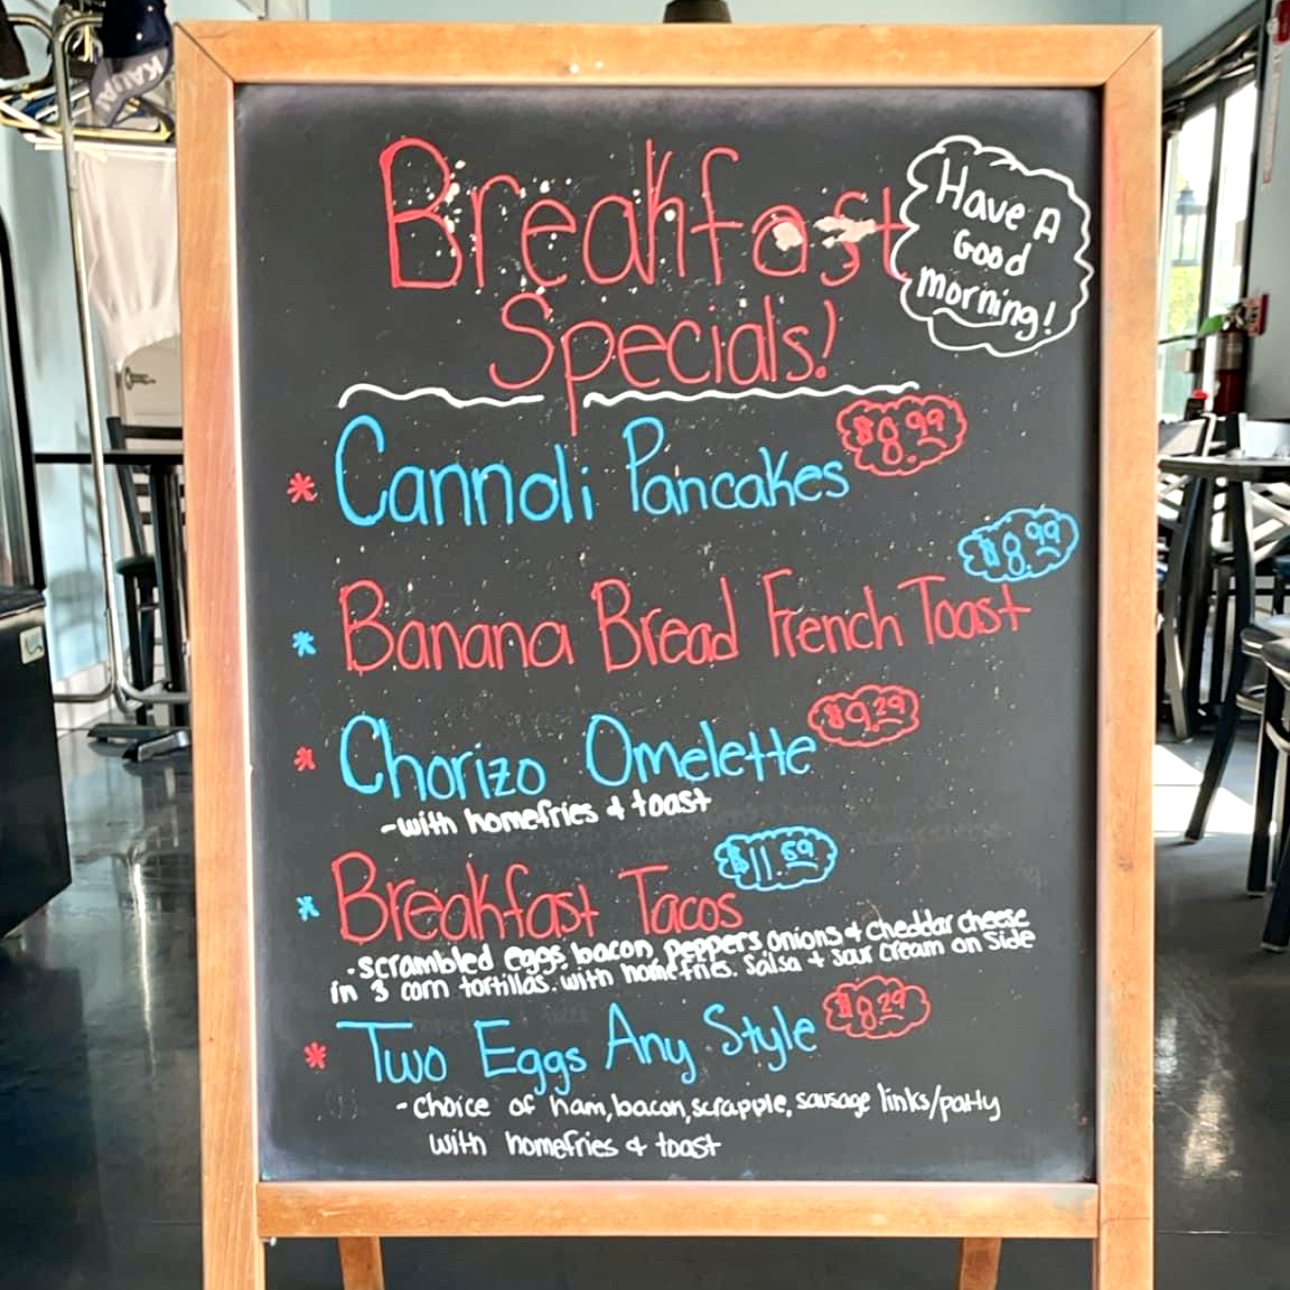 Breakfast
Specials!
Have A
Good
morning!
* Cannoli Pancakes $8.99
* Banana Bread French Toast $8.99
* Chorizo Omelette $9.29
-with homefries & toast
* Breakfast Tacos $11.59
-scrambled eggs, bacon, peppers onions & cheddar cheese
in 3 corn tortillas. with homefries. Salsa + sour cream on side
* Two Eggs Any Style $8.29
-choice of ham, bacon, scrapple, sausage links/patty
with homefries & toast